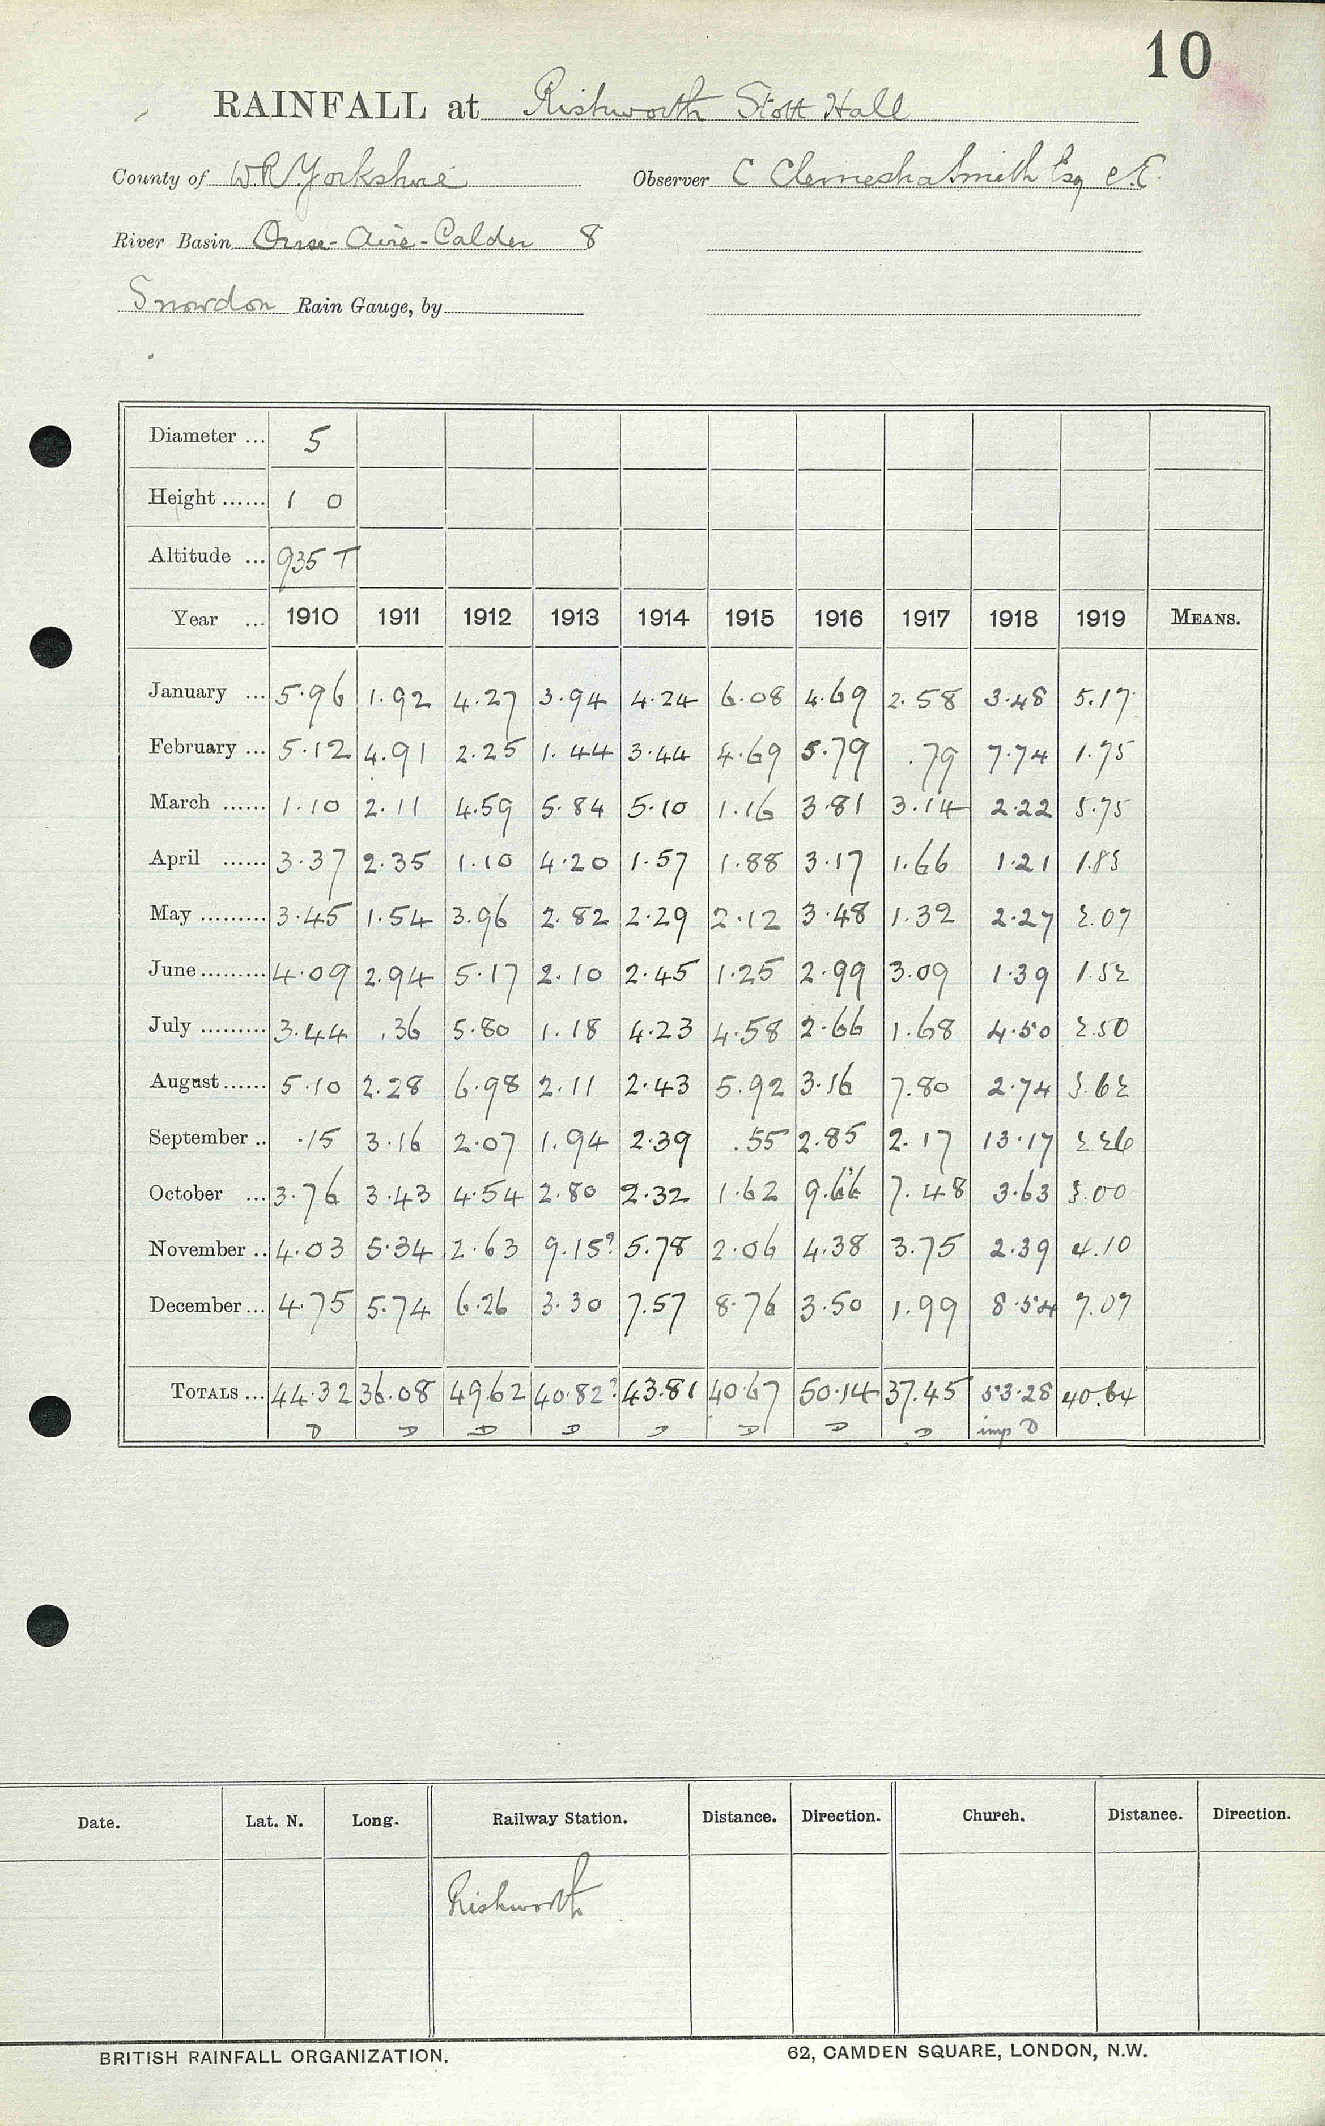 10
RAINFALL at Rishworth Stott Hall
County of WR Yorkshire Observer C Clemesha Smith Esq C.E.
River Basin Ouse-Aire-Calder 8
Snowdon Rain Gauge, by
Diameter ... 5
Height ...... 1 0
Altitude ... 935 T
Year ... 1910 1911 1912 1913 1914 1915 1916 1917 1918 1919 MEANS.
January ... 5.96 1.92 4.27 3.94 4.24 6.08 4.69 2.58 3.48 5.17
February ... 5.12 4.91 2.25 1.44 3.44 4.69 5.79 .79 7.74 1.75
March ...... 1.10 2.11 4.59 5.84 5.10 1.16 3.81 3.14 2.22 5.75
April ...... 3.37 2.35 1.10 4.20 1.57 1.88 3.17 1.66 1.21 1.83
May ......... 3.45 1.54 3.96 2.82 2.29 2.12 3.48 1.32 2.27 2.07
June ......... 4.09 2.94 5.17 2.10 2.45 1.25 2.99 3.09 1.39 1.52
July ......... 3.44 .36 5.80 1.18 4.23 4.58 2.66 1.68 4.50 2.50
August ...... 5.10 2.28 6.98 2.11 2.43 5.92 3.16 7.80 2.74 3.62
September .. .15 3.16 2.07 1.94 2.39 .55 2.85 2.17 13.17 2.26
October ... 3.76 3.43 4.54 2.80 2.32 1.62 9.66 7.48 3.63 3.00
November .. 4.03 5.34 2.63 9.15? 5.78 2.06 4.38 3.75 2.39 4.10
December ... 4.75 5.74 6.26 3.30 7.57 8.76 3.50 1.99 8.54 7.07
TOTALS ... 44.32 36.08 49.62 40.82? 43.81 40.67 50.14 37.45 53.28 40.64
D D D D D D D D imp D
Date. Lat. N. Long. Railway Station. Distance. Direction. Church. Distance. Direction.
Rishworth
BRITISH RAINFALL ORGANIZATION. 62, CAMDEN SQUARE, LONDON, N.W.